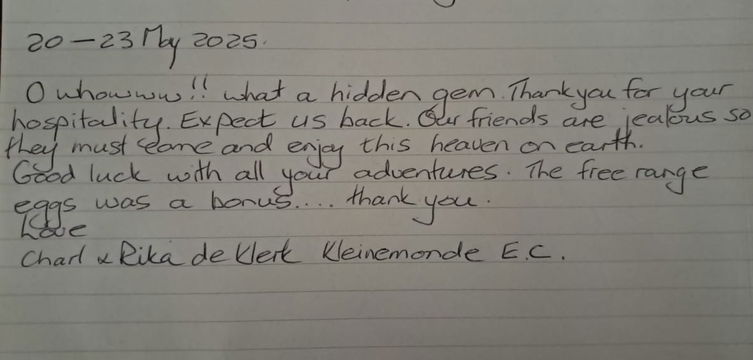 20 – 23 May 2025.
O whowww!! what a hidden gem. Thank you for your
hospitality. Expect us back. Our friends are jealous so
they must come and enjoy this heaven on earth.
Good luck with all your adventures. The free range
eggs was a bonus.... thank you.
Love
Charl & Rika de Klerk Kleinemonde E.C.